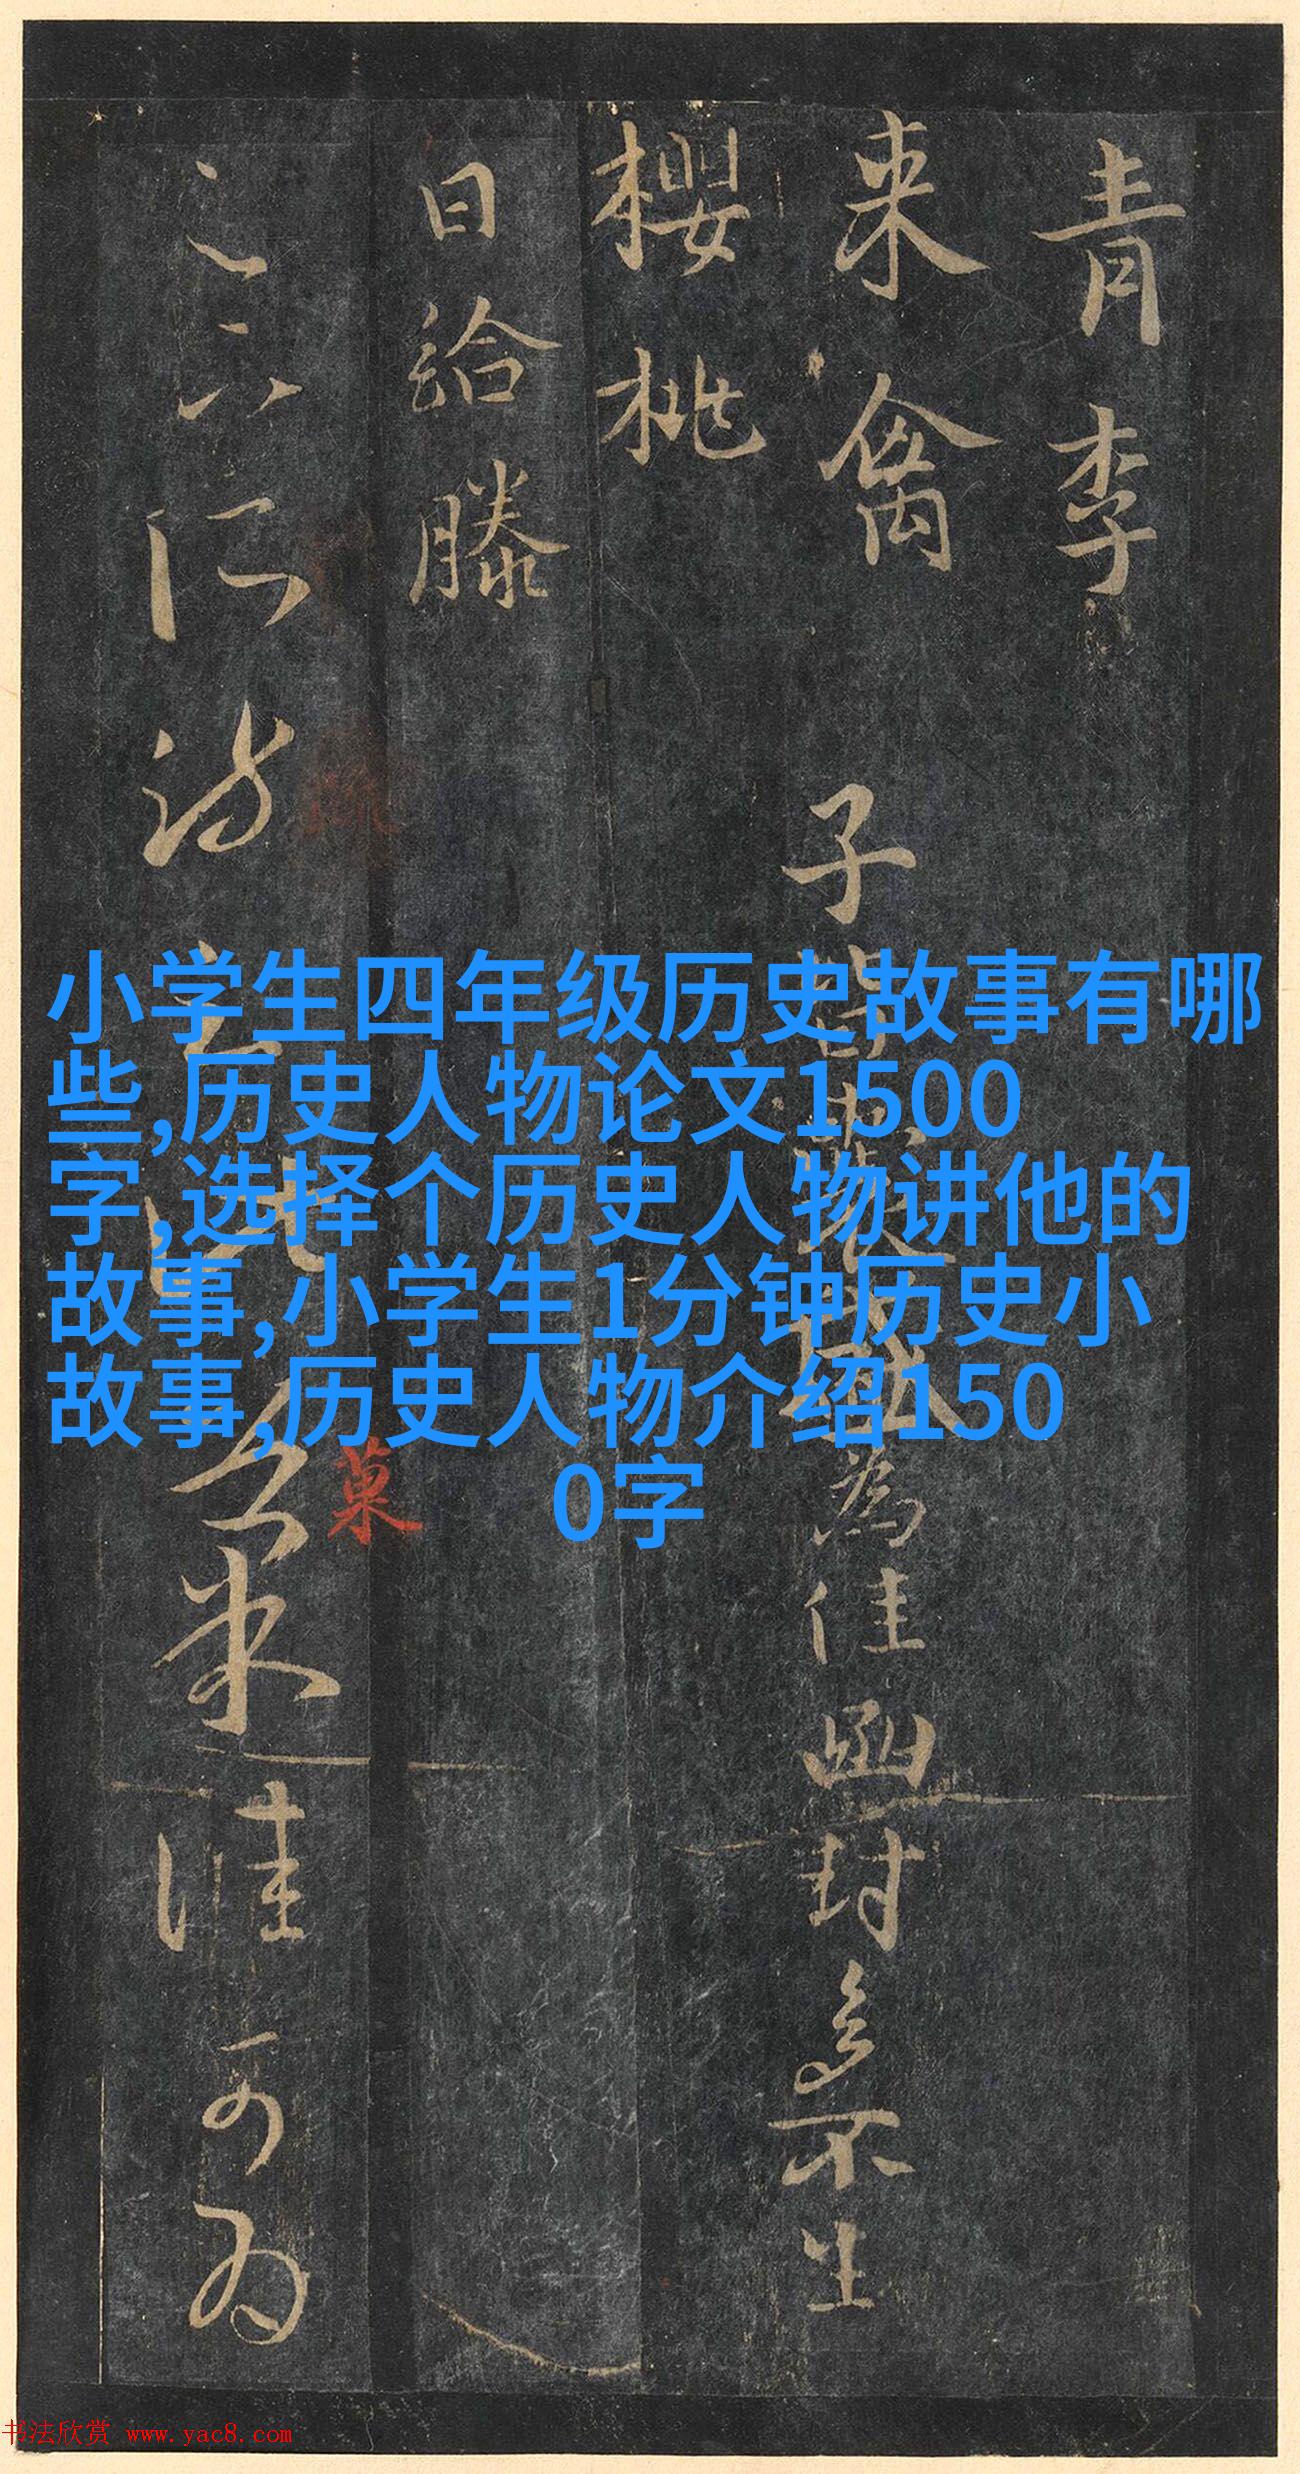 青李
来禽
櫻桃
日给滕
子皆囊盛為佳函封多不生
小学生四年级历史故事有哪
些,历史人物论文1500
字,选择个历史人物讲他的
故事,小学生1分钟历史小
故事,历史人物介绍150
0字
菓
书法欣赏 www.yac8.com